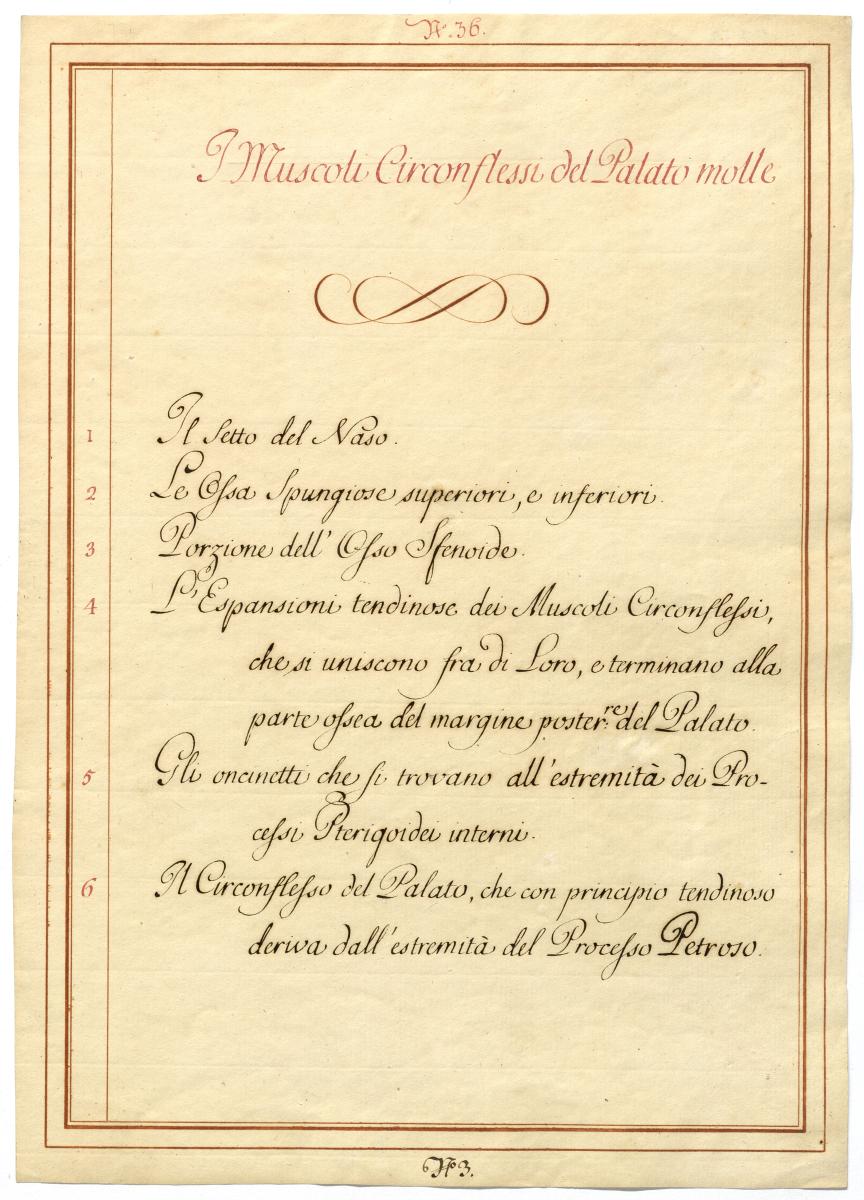 N.º 36.
I Muscoli Circonflessi del Palato molle
1 Il Setto del Naso.
2 Le Ossa Spungiose superiori, e inferiori.
3 Porzione dell' Osso Sfenoide.
4 L'Espansioni tendinose dei Muscoli Circonflessi,
che si uniscono fra di Loro, e terminano alla
parte ossea del margine poster:re del Palato.
5 Gli oncinetti che si trovano all'estremità dei Pro-
cessi Pterigoidei interni.
6 Il Circonflesso del Palato, che con principio tendinoso
deriva dall'estremità del Processo Petroso.
Nº 3.